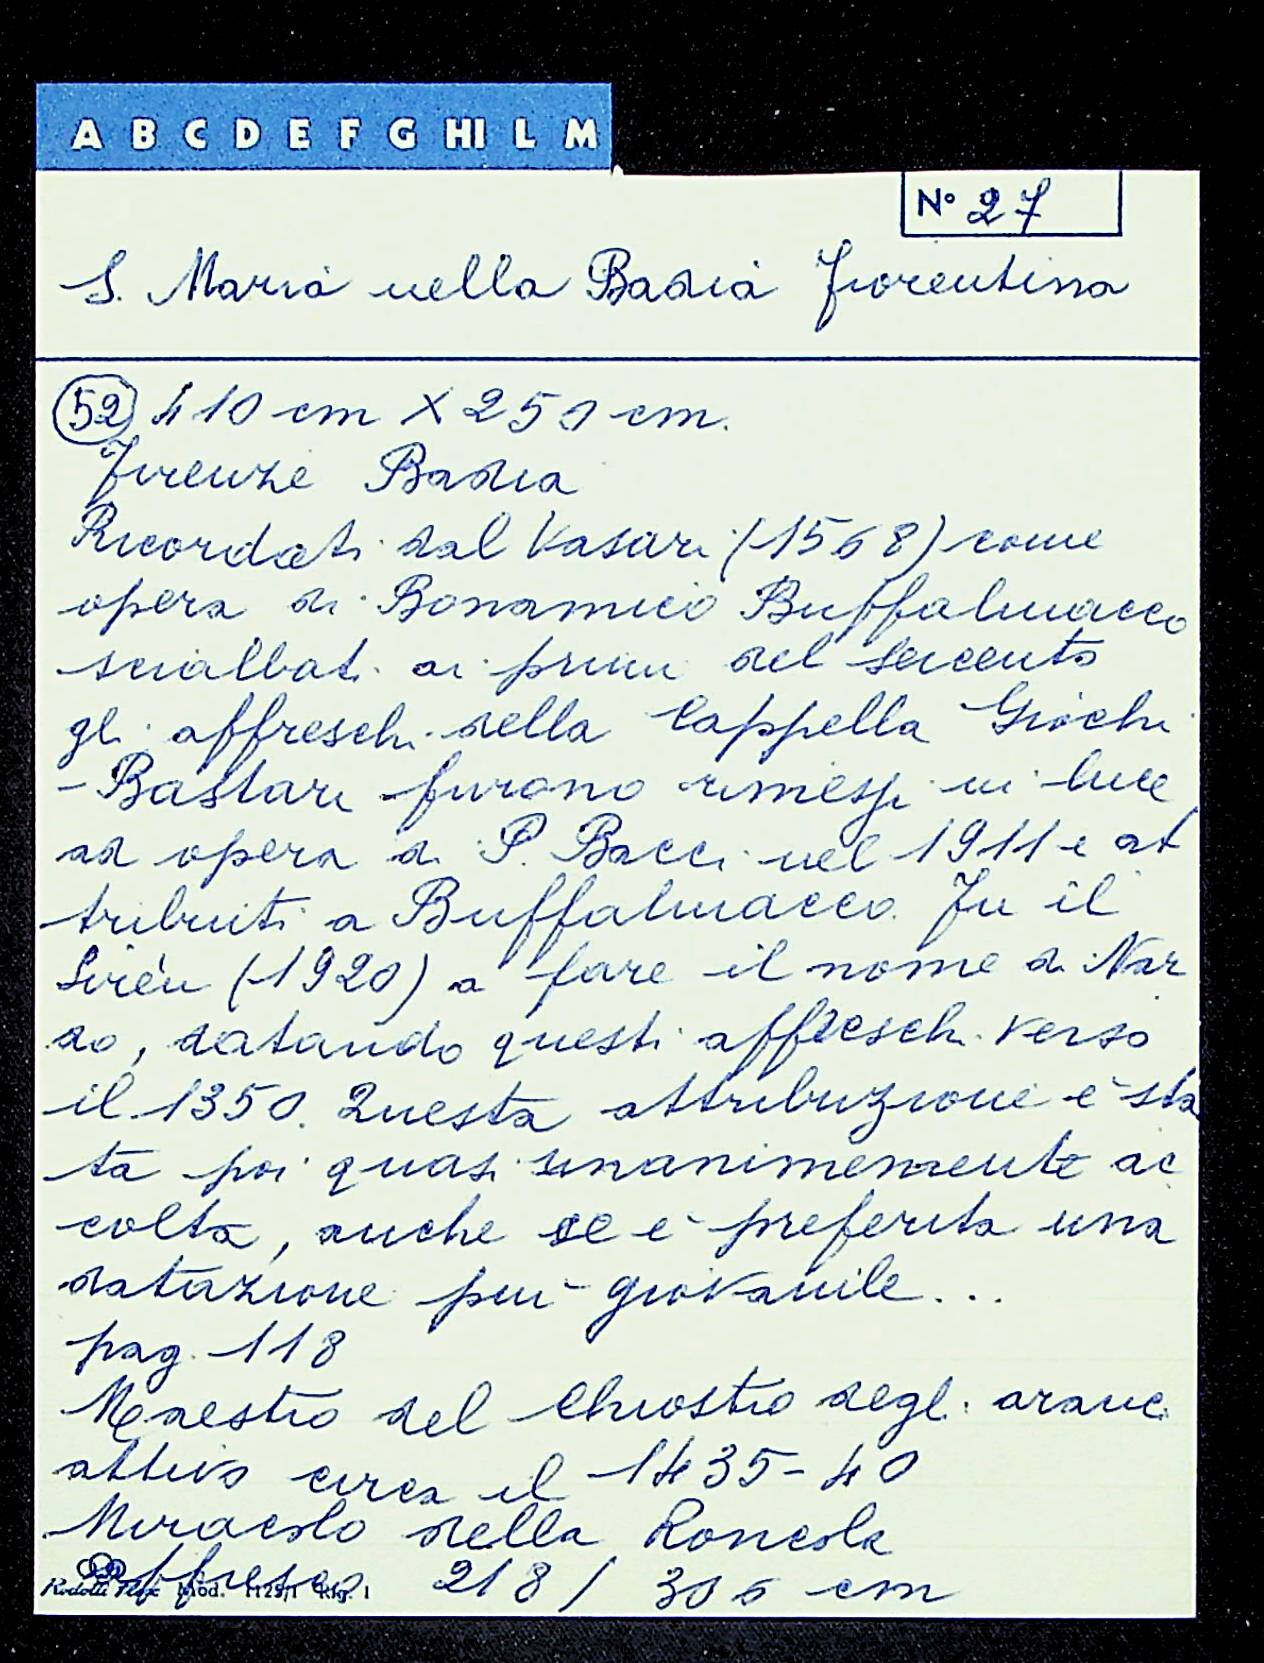 A B C D E F G HI L M
N° 27
S. Maria nella Badia Fiorentina
52 410 cm X 250 cm.
Firenze Badia
Ricordati dal Vasari (1568) come
opera di Bonamico Buffalmacco
scialbati ai primi del Seicento
gli affreschi della Cappella Giochi
- Bastari furono rimessi in luce
ad opera di P. Bacci nel 1911 e at
tribuiti a Buffalmacco. Fu il
Sirèn (1920) a fare il nome di Nar
do, datando questi affreschi verso
il 1350. Questa attribuzione è sta
ta poi quasi unanimemente ac
colta, anche se è preferita una
datazione più giovanile...
pag. 118
Maestro del Chiostro degli aranci
attivo circa il 1435-40
Miracolo della Roncola
Affresco 218 / 306 cm
Mod. 1125/1 Rig. 1